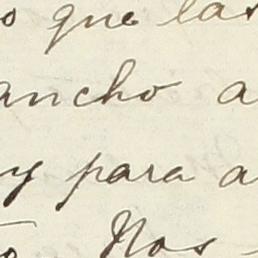 o que las
ancho a
y para a
Nos